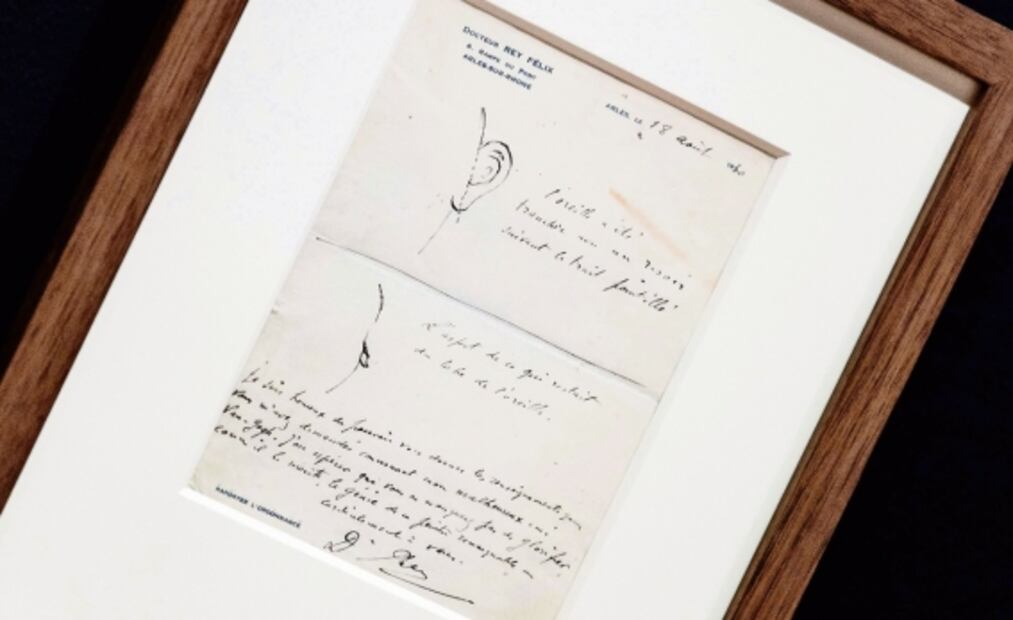 DOCTEUR REY FÉLIX
6, RAMPE DU PONT
ARLES-SUR-RHÔNE
ARLES, LE 18 août
l'oreille a été
tranchée avec un rasoir
suivant le trait pointillé
L'aspect de ce qui restait
du lobe de l'oreille.
Je suis heureux de pouvoir vous donner les renseignements que
vous m'avez demandés concernant mon malheureux ami
Van-Gogh. J'ose espérer que vous ne manquerez pas de glorifier
comme il le mérite, le génie de ce peintre remarquable
Cordialement à vous.
Dr Rey
RAPPORTER L'ORDONNANCE